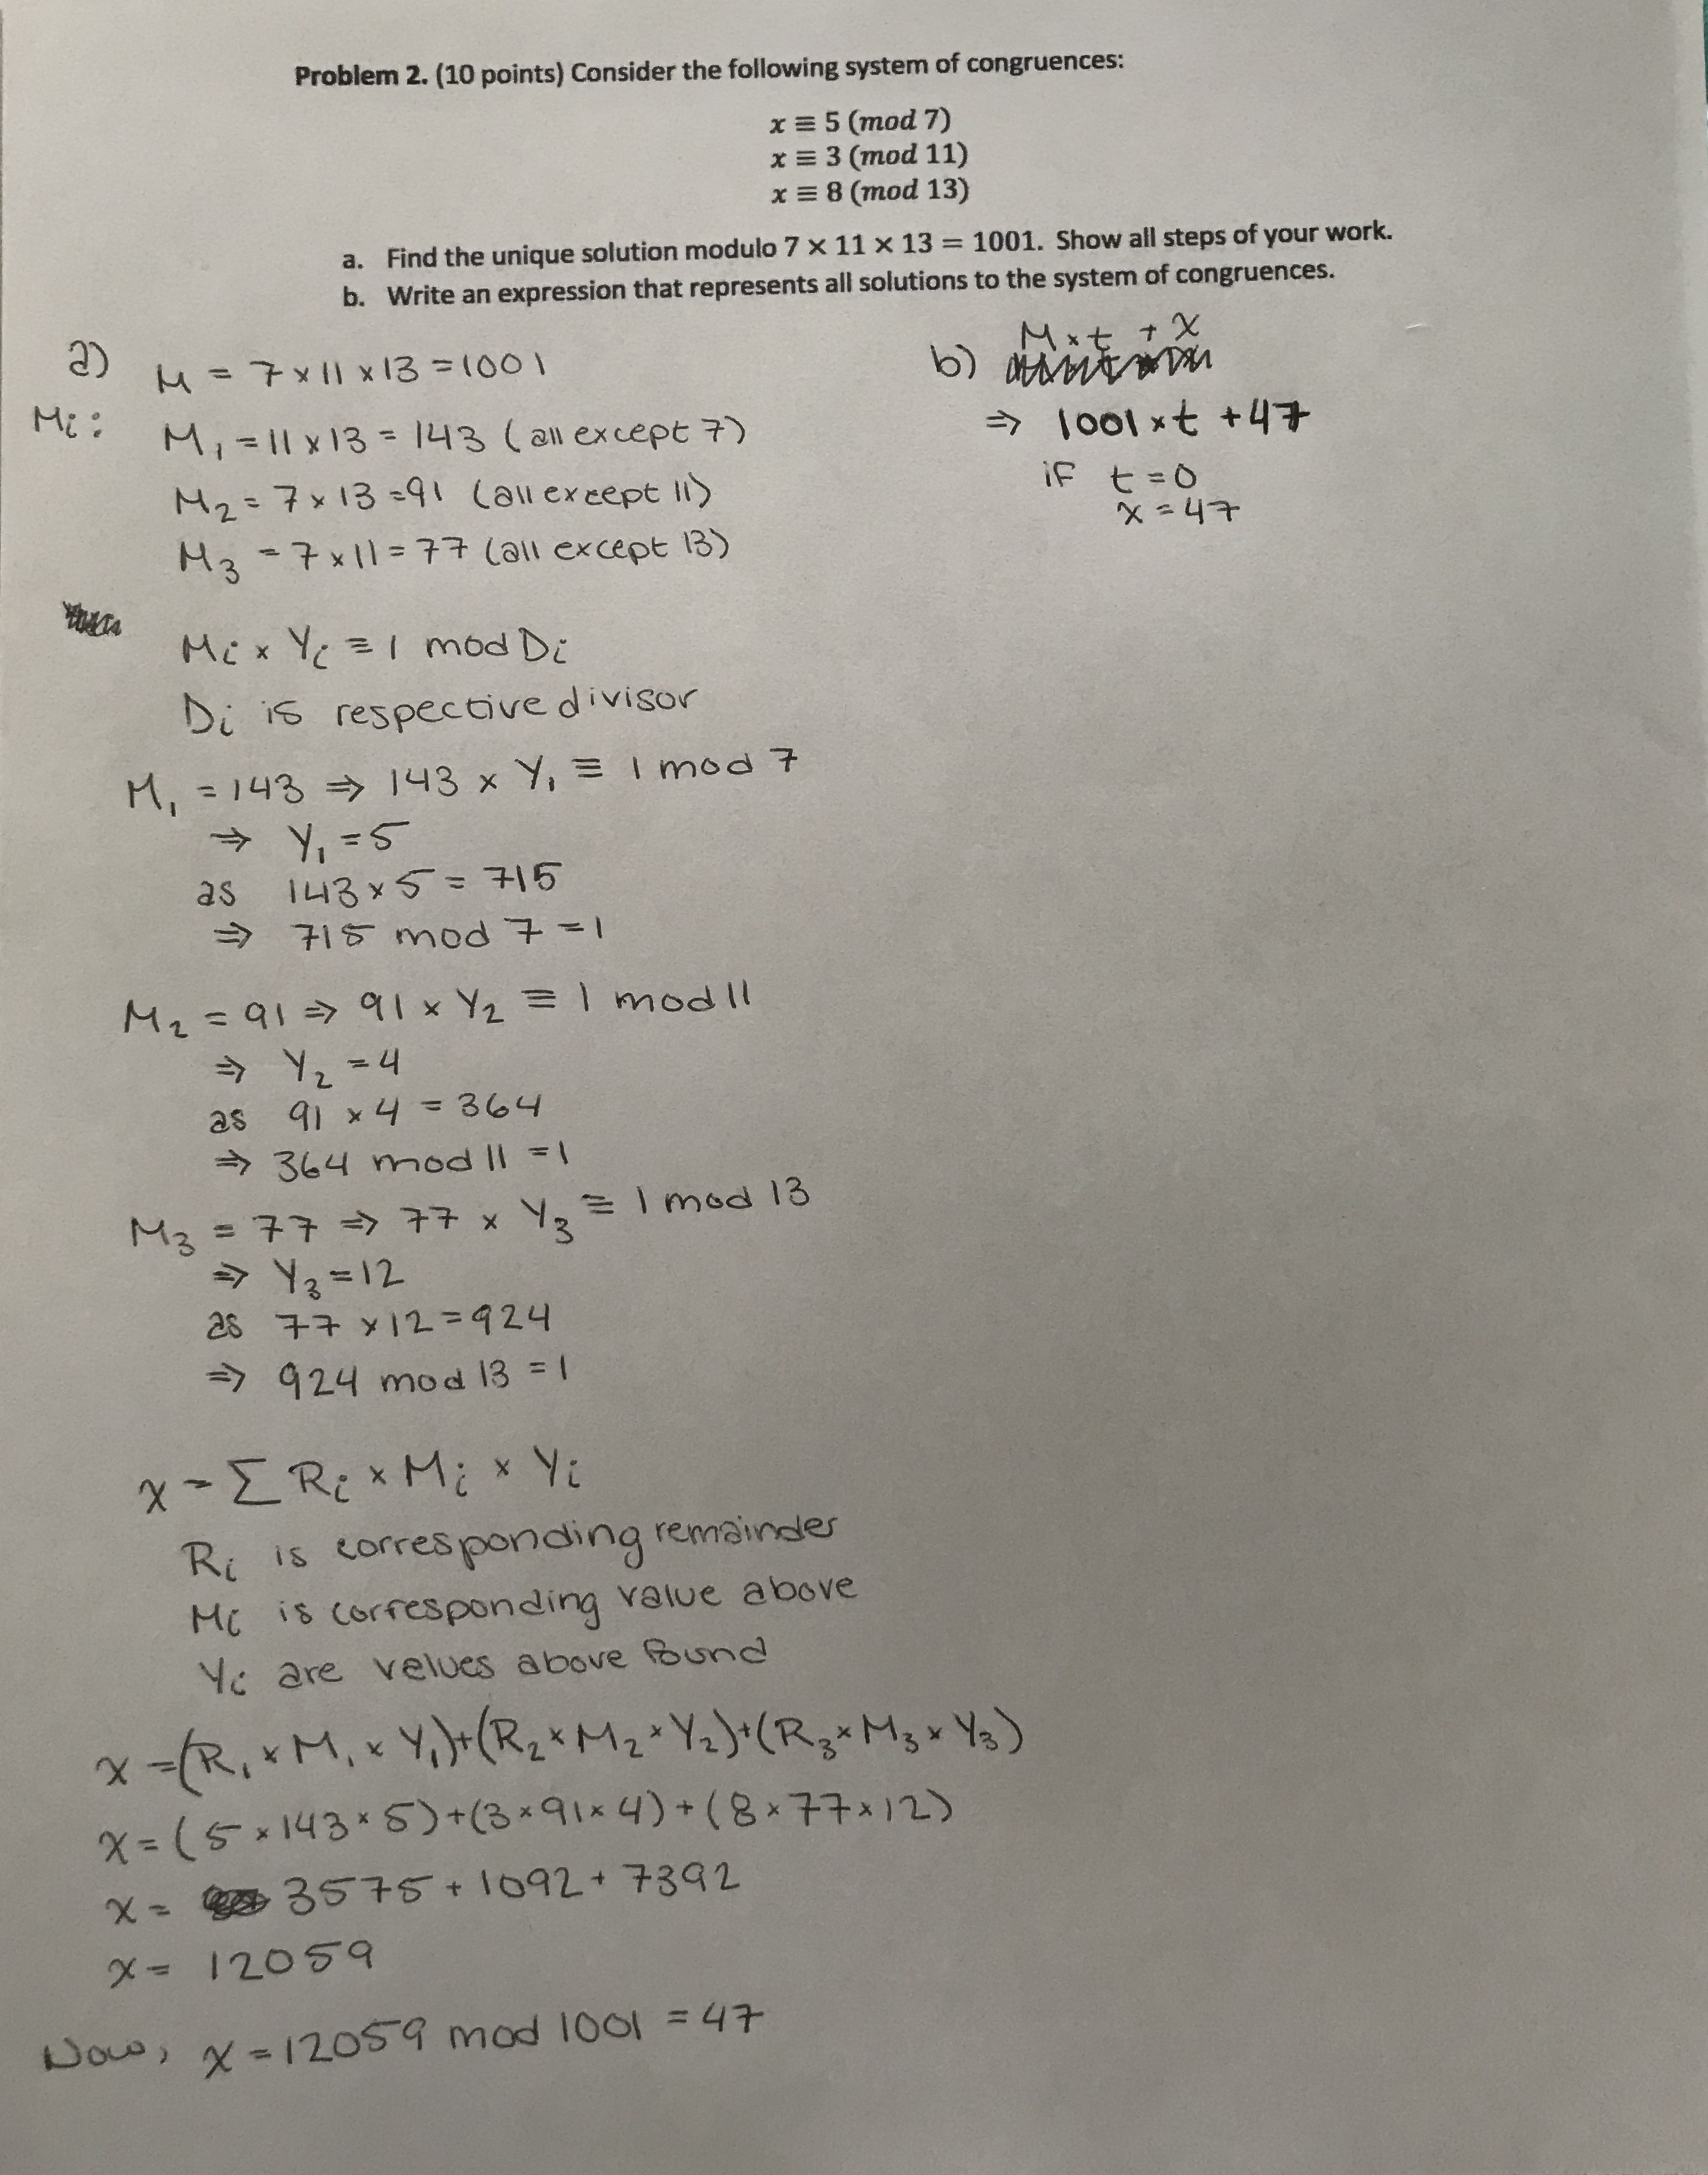 Problem 2. (10 points) Consider the following system of congruences:
x ≡ 5 (mod 7)
x ≡ 3 (mod 11)
x ≡ 8 (mod 13)
a. Find the unique solution modulo 7 × 11 × 13 = 1001. Show all steps of your work.
b. Write an expression that represents all solutions to the system of congruences.
a) M = 7 x 11 x 13 = 1001
Mi: M1 = 11 x 13 = 143 (all except 7)
M2 = 7 x 13 = 91 (all except 11)
M3 = 7 x 11 = 77 (all except 13)
Mi x Yi ≡ 1 mod Di
Di is respective divisor
M1 = 143 ⇒ 143 x Y1 ≡ 1 mod 7
⇒ Y1 = 5
as 143 x 5 = 715
⇒ 715 mod 7 = 1
M2 = 91 ⇒ 91 x Y2 ≡ 1 mod 11
⇒ Y2 = 4
as 91 x 4 = 364
⇒ 364 mod 11 = 1
M3 = 77 ⇒ 77 x Y3 ≡ 1 mod 13
⇒ Y3 = 12
as 77 x 12 = 924
⇒ 924 mod 13 = 1
x = Σ Ri x Mi x Yi
Ri is corresponding remainder
Mi is corresponding value above
Yi are values above found
x = (R1 x M1 x Y1) + (R2 x M2 x Y2) + (R3 x M3 x Y3)
x = (5 x 143 x 5) + (3 x 91 x 4) + (8 x 77 x 12)
x = 3575 + 1092 + 7392
x = 12059
Now, x = 12059 mod 1001 = 47
b) M x t + x
⇒ 1001 x t + 47
if t = 0
x = 47